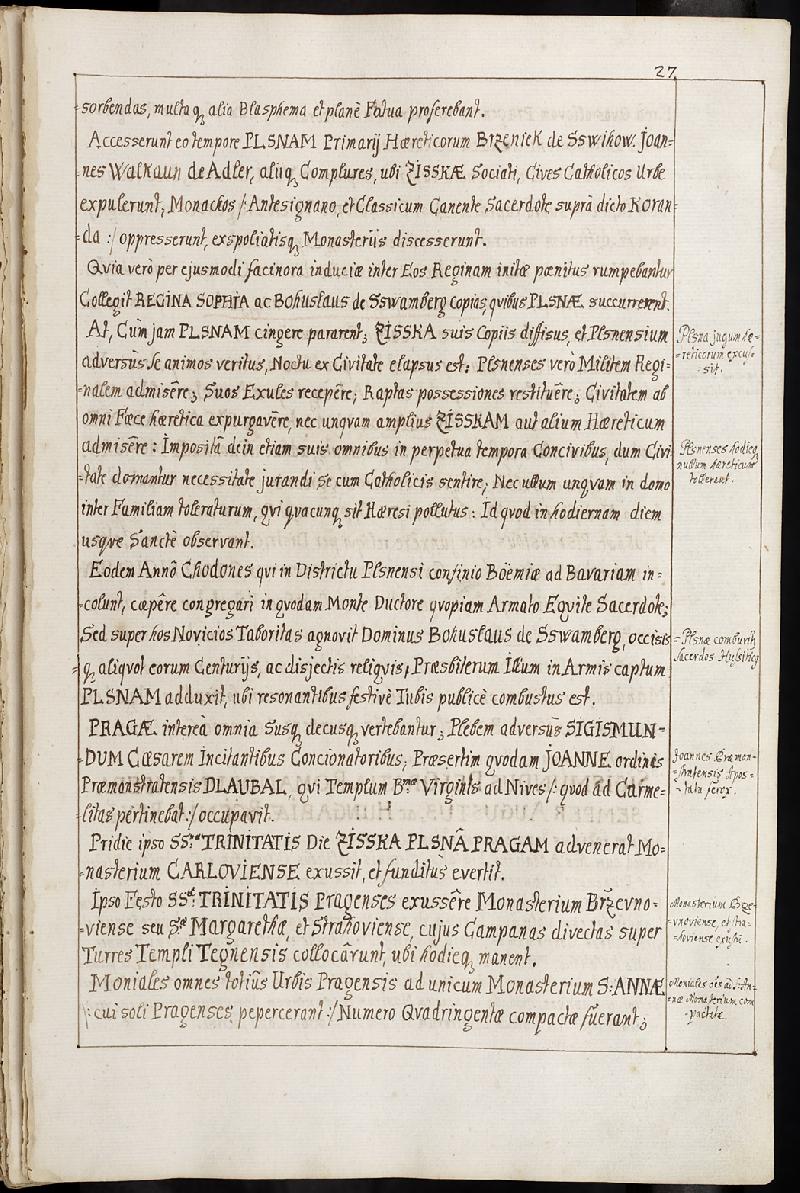 27
=sorbendas, multaq, alia Blasphema et planè Fatua proferebant.
Accesserunt eo tempore PLSNAM Primarij Hæreticorum Brzeniek de Sswihow. Joan=
=nes Walkaun de Adler, alijq, Complures, ubi ZISSKÆ Sociati, Cives Catholicos Urbe
expulerunt; Monachos /: Antesignano, et Classicum Canente Sacerdote suprà dicto Koran=
=da :/ oppresserunt, exspoliatisq, Monasterijs discesserunt.
Quia verò per ejusmodi facinora induciæ inter Eos Reginam initæ pænitus rumpebantur
Collegit REGINA SOPHIA ac Bohuslaus de Sswamberg copias, quibus PLSNÆ succurrerent.
At, Cùm jam PLSNAM cingere pararent; ZISSKA suis Copiis diffisus, et Plsnensium
adversùs se animos veritus, Noctu ex Civitate elapsus est: Plsnenses verò Militem Regi=
=nalem admisêre; Suos Exules recepêre; Raptas possessiones restituêre; Civitatem ab
omni Fæce hæretica expurgavêre, nec unqvam amplius ZISSKAM aut alium Hæreticum
admisêre: Imposità dein etiam suis omnibus in perpetua tempora Concivibus, dum Civi
=tate donantur necessitate jurandi se cum Catholicis sentire; Nec ullum unqvam in domo
inter Familiam toleraturum, qvi qvacunq, sit Hæresi pollutus: Id qvod in hodiernam diem
usqve Sanctè observant.
Eodem Annô Chodones qvi in Districtu Plsnensi confinio Boëmiæ ad Bavariam in=
=colunt, cæpêre congregari in qvodam Monte Ductore qvopiam Armato Equite Sacerdote;
Sed super hos Novicios Taboritas agnovit Dominus Bohuslaus de Sswamberg, occisis
q, aliqvot eorum Centurijs, ac disjectis reliqviis; Præsbiterum Illum in Armis captum
PLSNAM adduxit, ubi resonantibus festivè Tubis publicè combustus est.
PRAGÆ intereà omnia Susq, decusq, vertebantur; Plebem adversùs SIGISMUN=
=DUM Cæsarem Incitantibus Concionatoribus; Præsertim qvodam JOANNE ordinis
Præmonstratensis DLAUBAL, qvi Templum B.mæ Virginis ad Nives /: quod ad Carme=
=litas pertinebat :/ occupavit.
Pridie ipso SS.æ TRINITATIS Die ZISSKA PLSNÂ PRAGAM advenerat Mo=
=nasterium CARLOVIENSE exussit, et funditùs evertit.
Ipso Festo SS.æ TRINITATIS Pragenses exussêre Monasterium Brzevno=
=viense seu S.æ Margarethæ, et Strahoviense, cujus Campanas divectas super
Turres Templi Tegnensis collocârunt, ubi hodieq, manent.
Moniales omnes totiùs Urbis Pragensis ad unicum Monasterium S: ANNÆ
/: cui soli Pragenses pepercerant :/ Numero Qvadringentæ compactæ fuerant;
Plsna jugum hæ=
=reticorum excus=
sit.
Plsnenses hodieq,
nullum hæreticum
tollerant.
Plsnæ comburitur
Sacerdos
Joannes Præmon=
=stratensis Apos=
=tata ferox.
Monasterium Brze=
vnoviense, et Stra=
=hoviense
Moniales ões ad S: An=
=næ Monasterium com
pactæ.